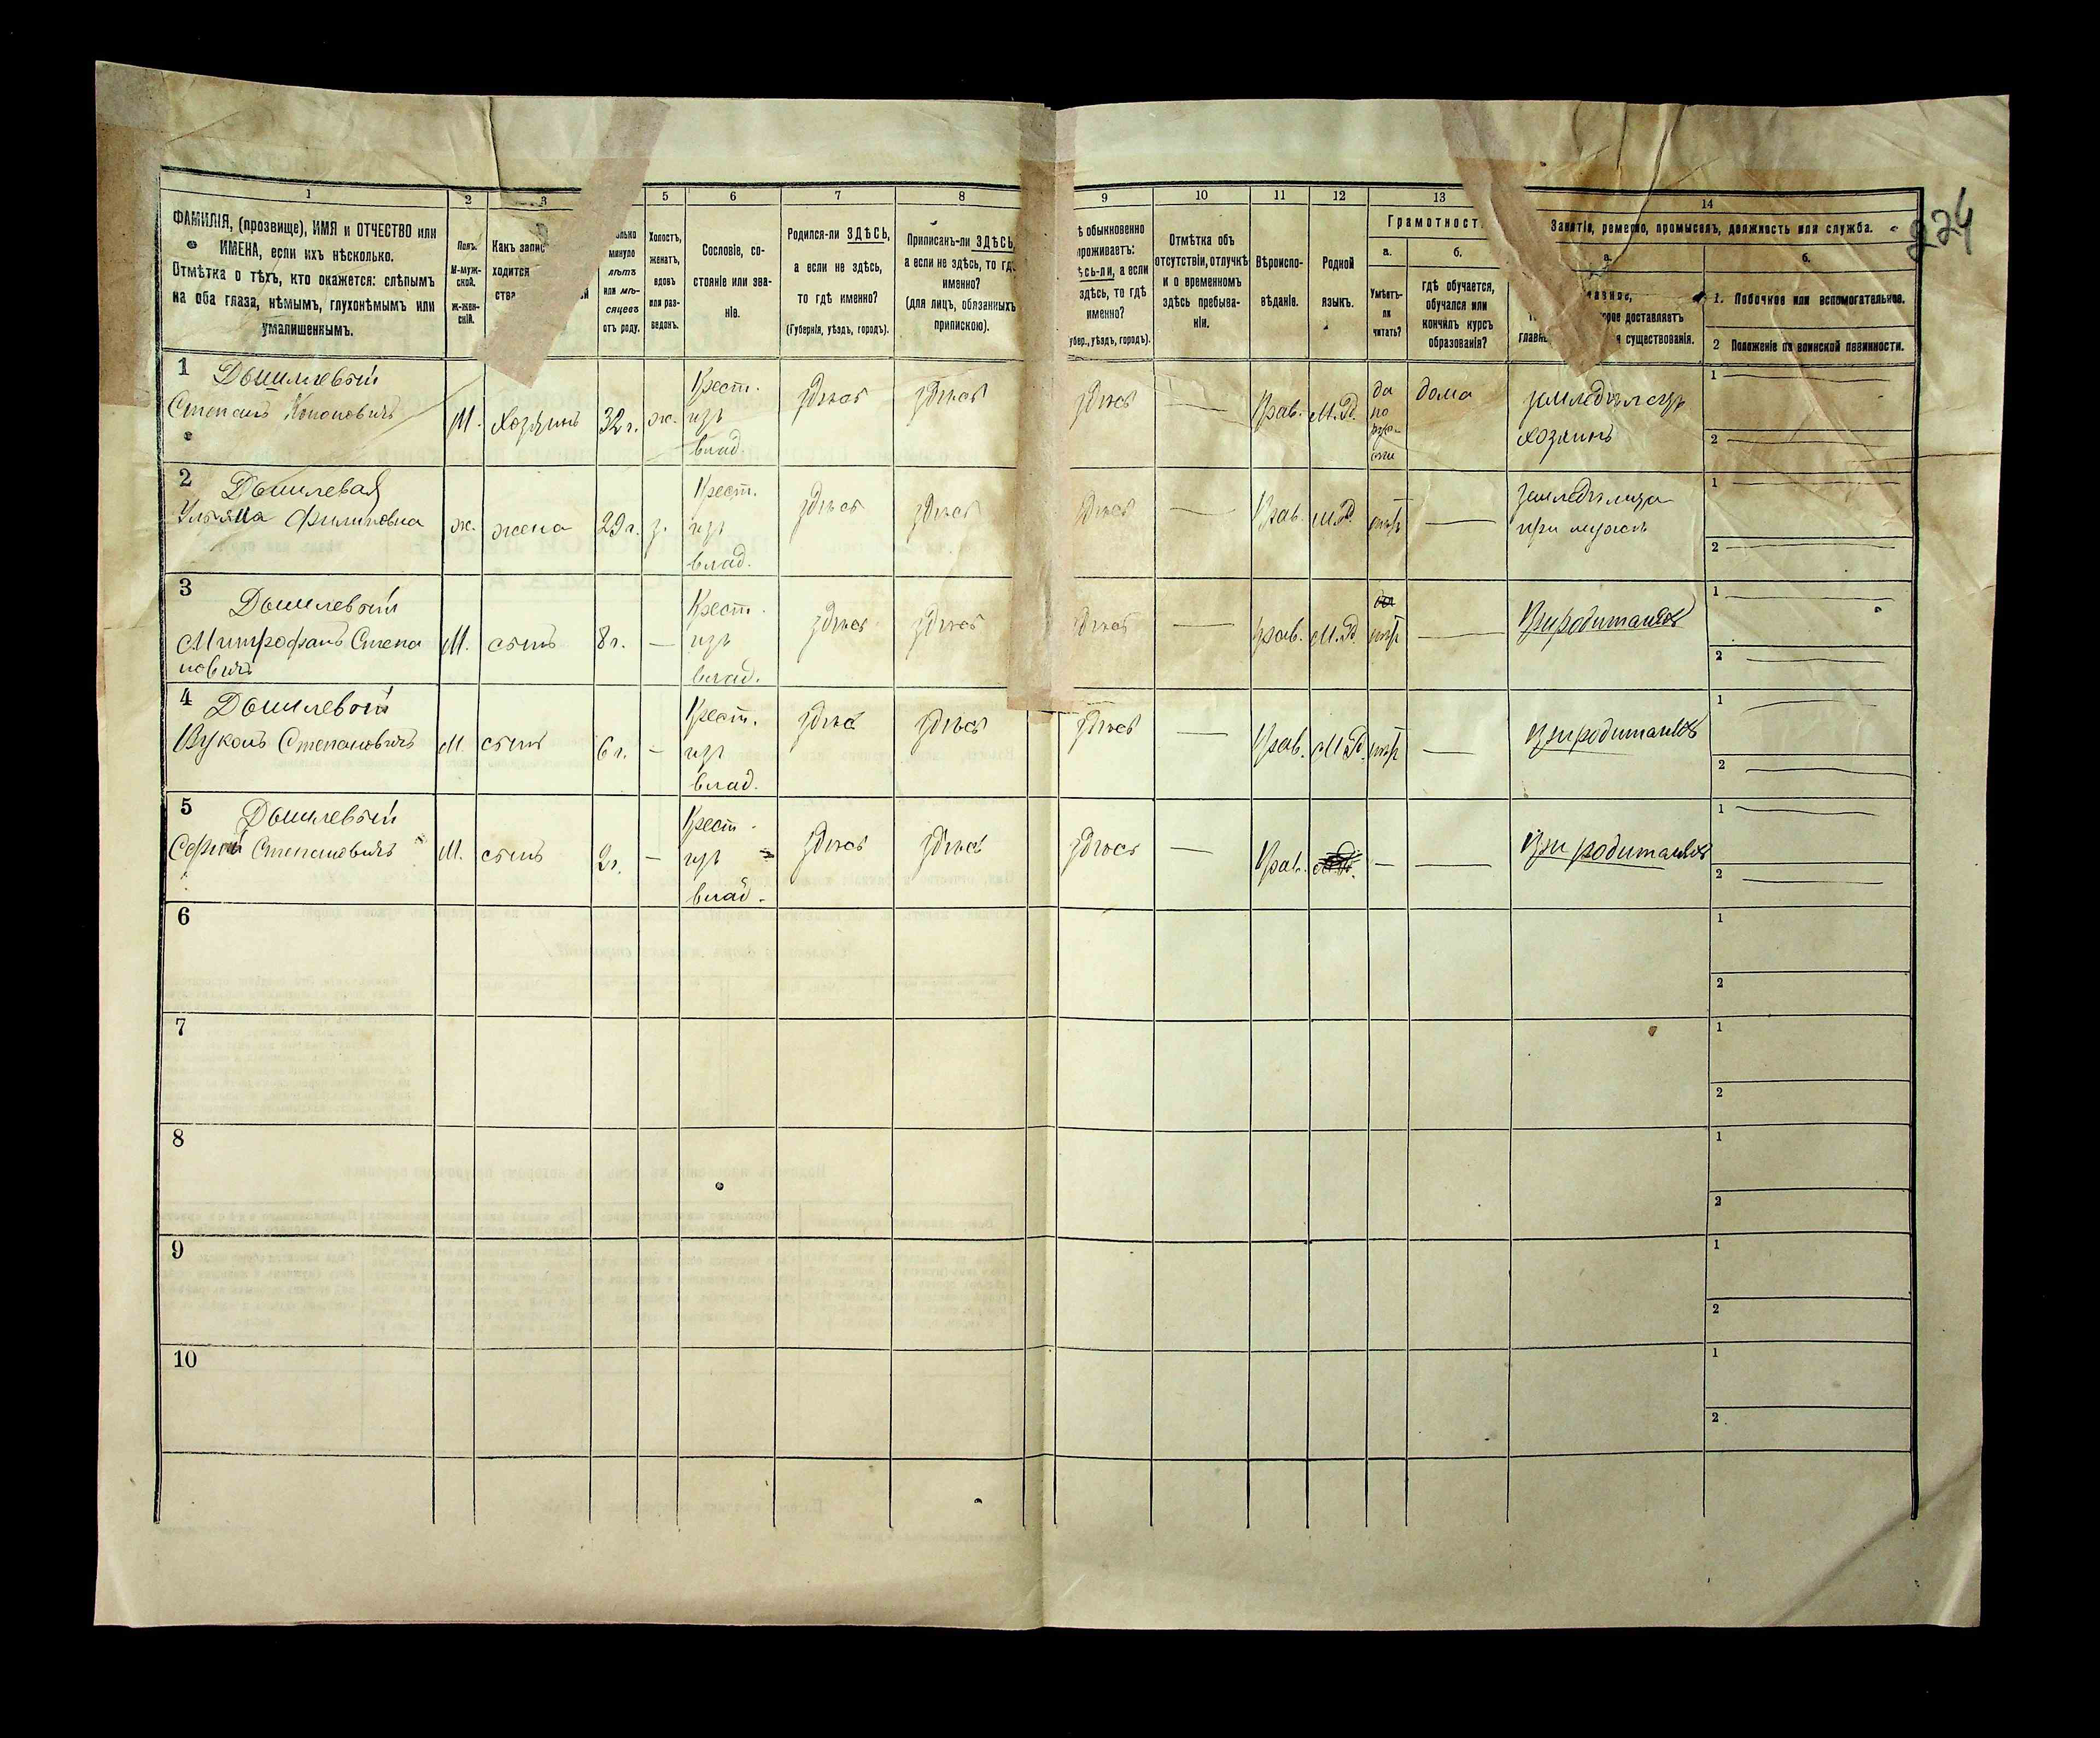 224
1
2
3
5
6
7
8
9
10
11
12
13
14
ФАМИЛІЯ, (прозвище), ИМЯ и ОТЧЕСТВО или
ИМЕНА, если ихъ нѣсколько.
Отмѣтка о тѣхъ, кто окажется: слѣпымъ
на оба глаза, нѣмымъ, глухонѣмымъ или
умалишеннымъ.
Полъ.
М-муж-
ской.
Ж-жен-
скій.
Какъ запис
ходится
ства
минуло
лѣтъ
или мѣ-
сяцевъ
отъ роду.
Холостъ,
женатъ,
вдовъ
или раз-
веденъ.
Сословіе, со-
стояніе или зва-
ніе.
Родился-ли ЗДѢСЬ,
а если не здѣсь,
то гдѣ именно?
(Губернія, уѣздъ, городъ).
Приписанъ-ли ЗДѢСЬ,
а если не здѣсь, то гдѣ
именно?
(для лицъ, обязанныхъ
припискою).
ѣ обыкновенно
проживаетъ:
ѣсь-ли, а если
здѣсь, то гдѣ
именно?
убер., уѣздъ, городъ).
Отмѣтка объ
отсутствіи, отлучкѣ
и о временномъ
здѣсь пребыва-
ніи.
Вѣроиспо-
вѣданіе.
Родной
языкъ.
Грамотност
а.
Умѣетъ-
ли
читать?
б.
гдѣ обучается,
обучался или
кончилъ курсъ
образованія?
Занятіе, ремесло, промыселъ, должность или служба.
а.
главн
рое доставляетъ
существованія.
б.
1. Побочное или вспомогательное.
2 Положеніе по воинской повинности.
1 Дышлевый
Степанъ Кононовичъ
М. Хозяинъ 32 г. ж.
Крест.
изъ
влад.
здѣсь здѣсь здѣсь — Прав. М.Р.
да
по
дома
земледѣлецъ
хозяинъ
1
2
2 Дышлевая
Ульяна Филиповна
ж. жена 29 г. з.
Крест.
изъ
влад.
здѣсь здѣсь здѣсь — Прав. М.Р. нѣтъ —
земледѣлица
при мужѣ
1
2
3 Дышлевый
Митрофанъ Степа
новичъ
М. сынъ 8 г. —
Крест.
изъ
влад.
здѣсь здѣсь здѣсь — прав. М.Р. нѣтъ —
При родителяхъ
1
2
4 Дышлевый
Вуколъ Степановичъ
М. сынъ 6 г. —
Крест.
изъ
влад.
здѣсь здѣсь здѣсь — Прав. М.Р. нѣтъ —
При родителяхъ
1
2
5 Дышлевый
Степановичъ
М. сынъ 2 г. —
Крест.
изъ
влад.
здѣсь здѣсь здѣсь — Прав. — —
При родителяхъ
1
2
6
1
2
7
1
2
8
1
2
9
1
2
10
1
2